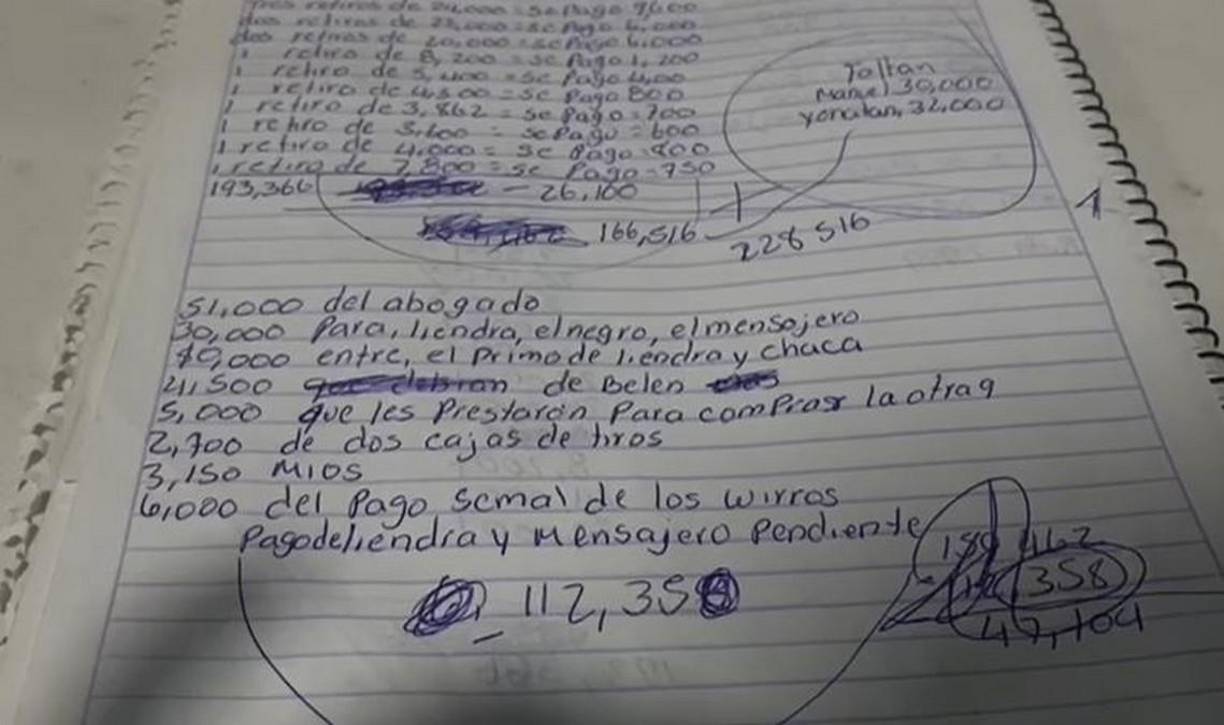 tres retiros de 24,000 = se pago 9,600
dos retiros de 23,000 = se pago 6,000
dos retiros de 20,000 = se pago 6,000
1 retiro de 8,200 = se pago 1,200
1 retiro de 5,400 = se pago
1 retiro de 4,500 = se Pago 800
1 retiro de 3,862 = se pago = 700
1 retiro de 3,600 = se Pago = 600
1 retiro de 4,000 = se Pago = 800
1 retiro de 7,800 = se Pago = 750
193,366 - 26,100
166,516
+
228 516
Faltan
Manuel 30,000
yonatan, 32,000
1
51,000 del abogado
30,000 Para, liendra, el negro, el mensajero
10,000 entre, el primo de liendra y chaca
4,500 de Belen
5,000 que les Prestaron Para comprar la otra 9
2,700 de dos cajas de tiros
3,150 MIOS
6,000 del Pago semal de los wirros
Pago de liendra y Mensajero Pendiente
- 112,358
358
47,104